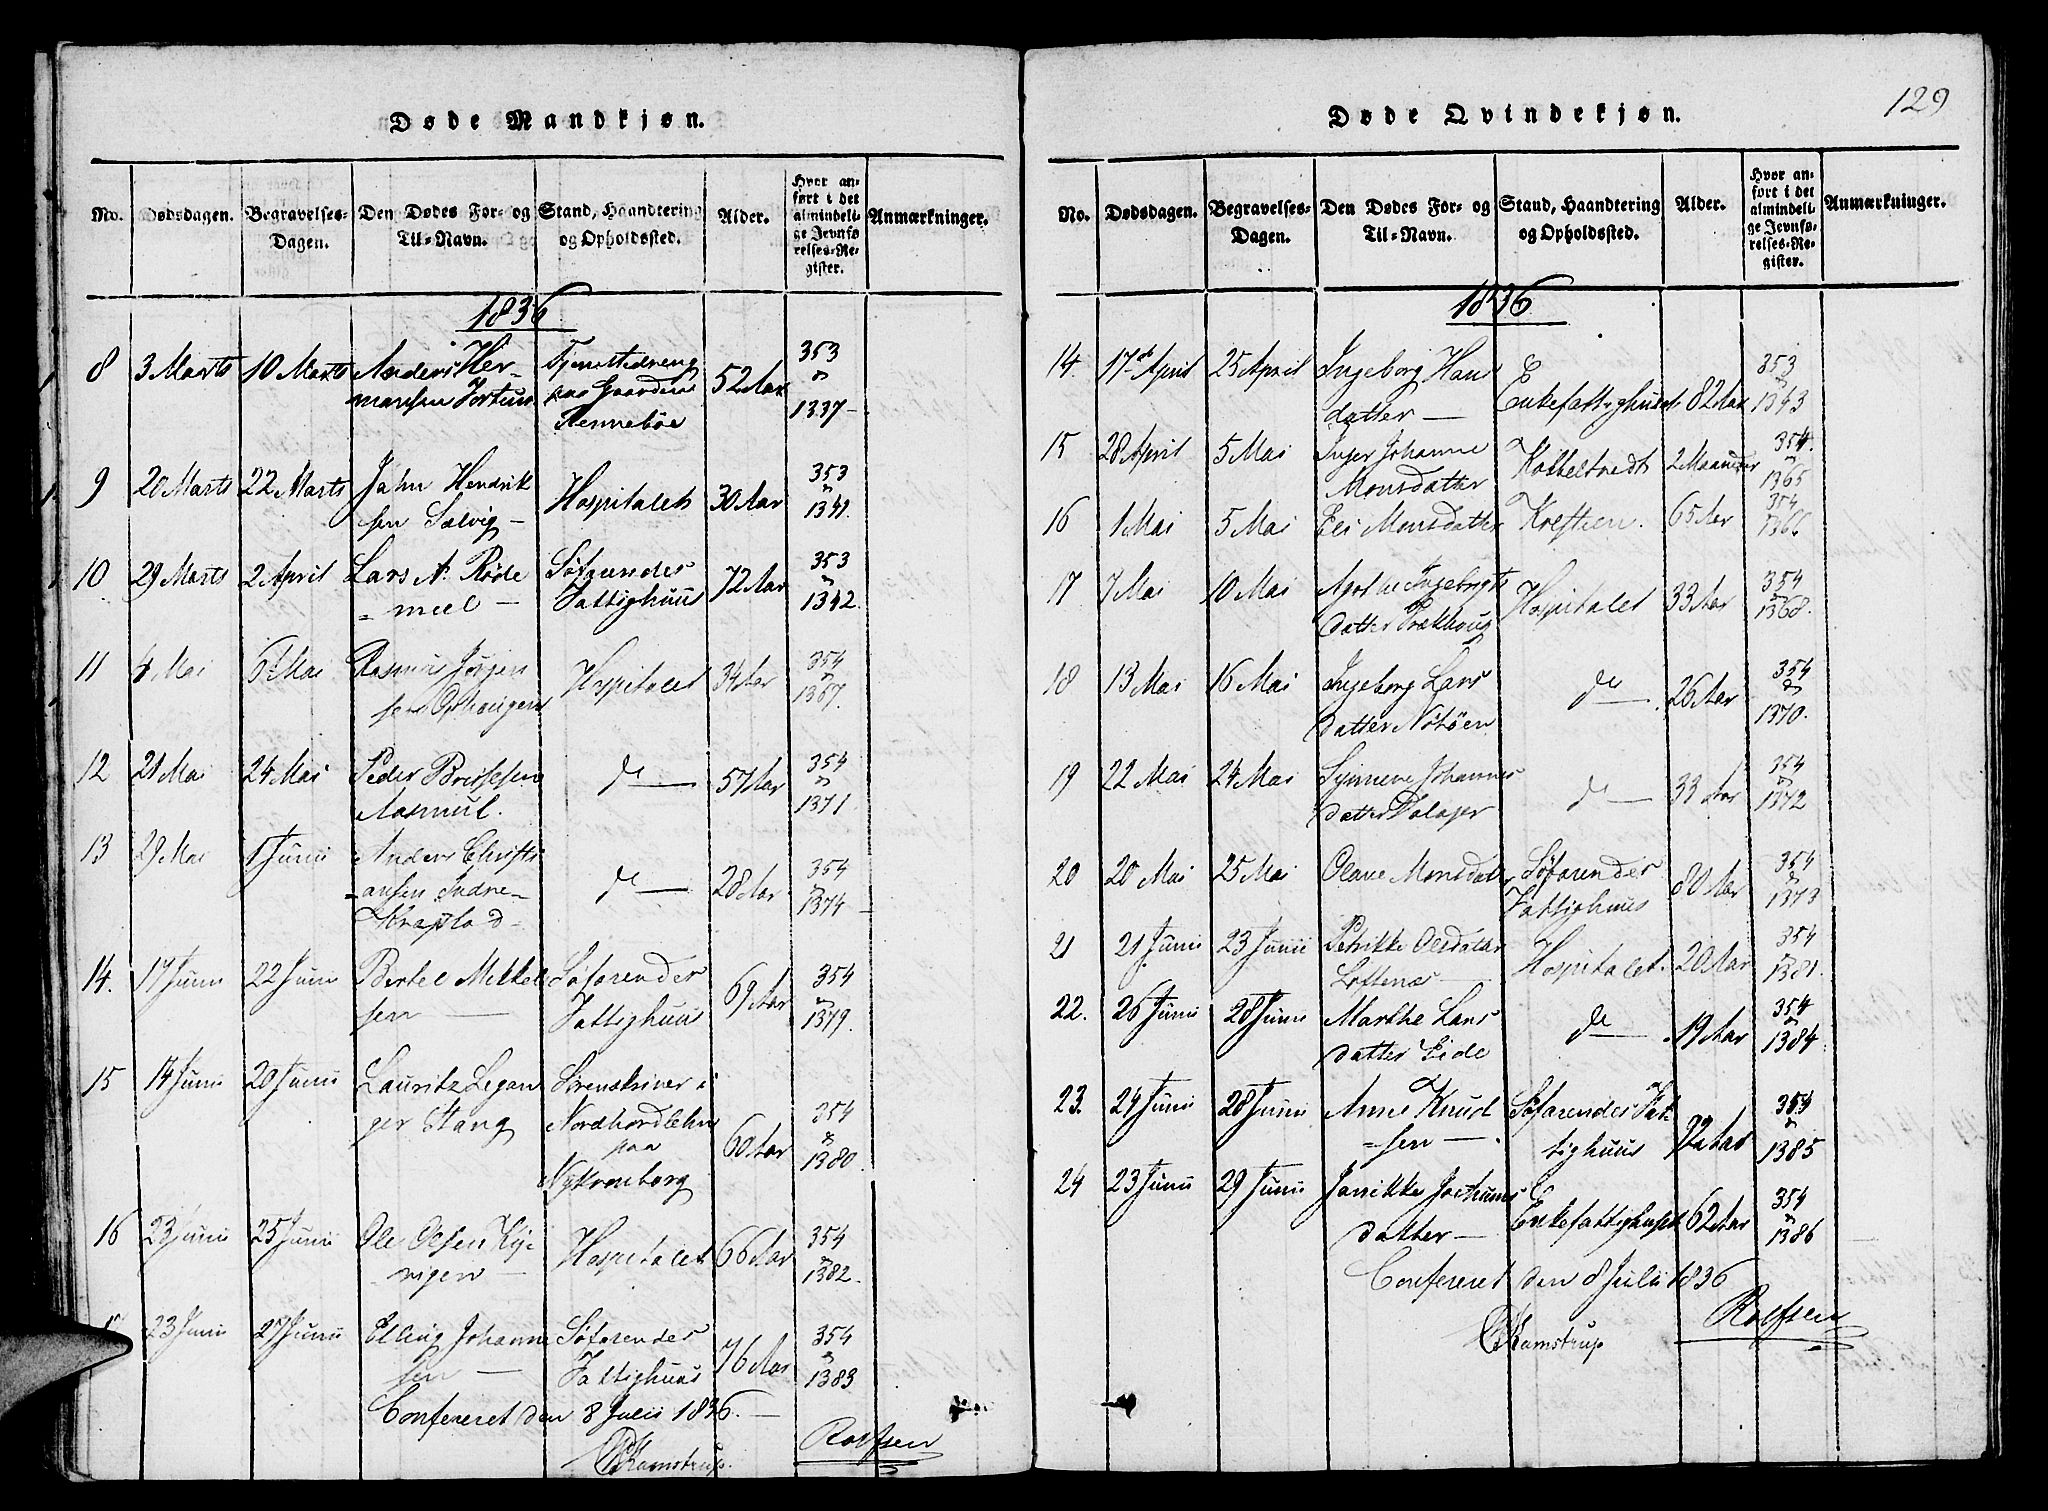 Døde Mandkjøn.
No. Dødsdagen. Begravelses-Dagen. Den Dødes For- og Til-Navn. Stand, Haandtering og Opholdssted. Alder. Hvor anført i det almindelige Jevnførelses-Register. Anmærkninger.
1836
8 3 Marts 10 Marts Anders Her- Tjenestedreng 52 Aar 353
mansen Fortun paa Gaarden 1337
Rennebøe
9 20 Marts 22 Marts John Hendrik Hospitalet 30 Aar 353
sen Solvig 1341.
10 29 Marts 2 April Lars N. Røde Søfarendes 72 Aar 353
meel Fattighuus 1342.
11 4 Mai 6 Mai Rasmus Jørgen Hospitalet 34 Aar 354
sen 1367.
12 21 Mai 24 Mai Peder do 57 Aar 354
1371.
13 29 Mai 1 Junii Anders Christi do 28 Aar 354
ansen Indre- 1374
14. 17 Junii 22 Junii Bertel Mikkel Søfarendes 69 Aar 354
sen Fattighuus 1379.
15 14 Junii 20 Junii Lauritz Legan Sorenskriver i 60 Aar 354
ger Stang Nordhordlehn 1380.
paa
Nykronborg
16 23 Junii 25 Junii Ole Olsen Hospitalet 66 Aar 354
1382.
17 23 Junii 27 Junii Elling Johanne Søfarendes 76 Aar 354
sen Fattighuus 1383
Confereret den 8 Julii 1836.
Ramstrup. Rolfsen
129
Døde Qvindekjøn.
No. Dødsdagen. Begravelses-Dagen. Den Dødes For- og Til-Navn. Stand, Haandtering og Opholdssted. Alder. Hvor anført i det almindelige Jevnførelses-Register. Anmærkninger.
1836
14. 17de April 25 April Ingeborg Hans Enkefattighuset 82 Aar 353
datter 1343
15 28 April 5 Mai Inger Johanne Kobbeltvedt 2 Maaneder 354
Monsdatter 1365
16 1 Mai 5 Mai Eli Monsdatter 65 Aar 354
1366
17 7 Mai 10 Mai Ingeborgts Hospitalet 33 Aar 354
datter 1368.
18 13 Mai 16 Mai Ingeborg Lars do 26 Aar 354
datter 1370.
19 22 Mai 24 Mai Synneve Johannes do 33 Aar 354
datter 1372
20 20 Mai 25 Mai Olave Monsdatter Søfarendes 80 Aar 354
Fattighuus 1373
21 21 Junii 23 Junii Petrikke Olsdatter Hospitalet. 20 Aar 354
1381.
22. 26 Junii 28 Junii Marthe Lars do 19 Aar 354
datter Eide 1384.
23. 24 Junii 28 Junii Anne Knud Søfarendes Fat 72 Aar 354
sen tighuus 1385
24 23 Junii 29 Junii Janikke Jochums Enkefattighuset 62 Aar 354
datter 1386
Confereret den 8 Julii 1836
Ramstrup Rolfsen